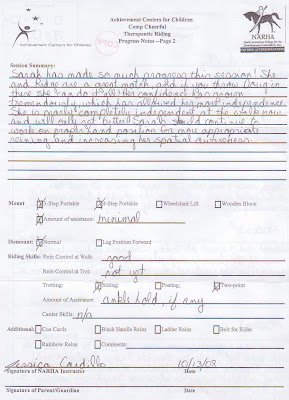 Achievement Centers for Children
Camp Cheerful
Therapeutic Riding
Progress Notes—Page 2
Achievement Centers for Children
NARHA
Session Summary:
Sarah has made so much progress this session! She
and Ridge are a great match, and if you throw Doug in
there she can do it all! Her confidence has grown
tremendously, which has allowed her most independence.
She is nearly completely independent at the walk now
and will only get better! Sarah should continue to
work on proper hand position for more appropriate
reining and increasing her spatial awareness.
Mount
3-Step Portable
4-Step Portable
Wheelchair Lift
Wooden Block
Amount of assistance: minimal
Dismount:
Normal
Leg Position Forward
Riding Skills: Rein Control at Walk: good
Rein Control at Trot: not yet
Trotting:
Sitting;
Posting;
Two-point
Amount of Assistance: ankle hold, if any
Canter Skills: n/a
Additional:
Cue Cards
Black Handle Reins
Ladder Reins
Belt for Rider
Rainbow Reins
Comments:
Jessica 10/13/08
Signature of NARHA Instructor Date
Signature of Parent/Guardian Date